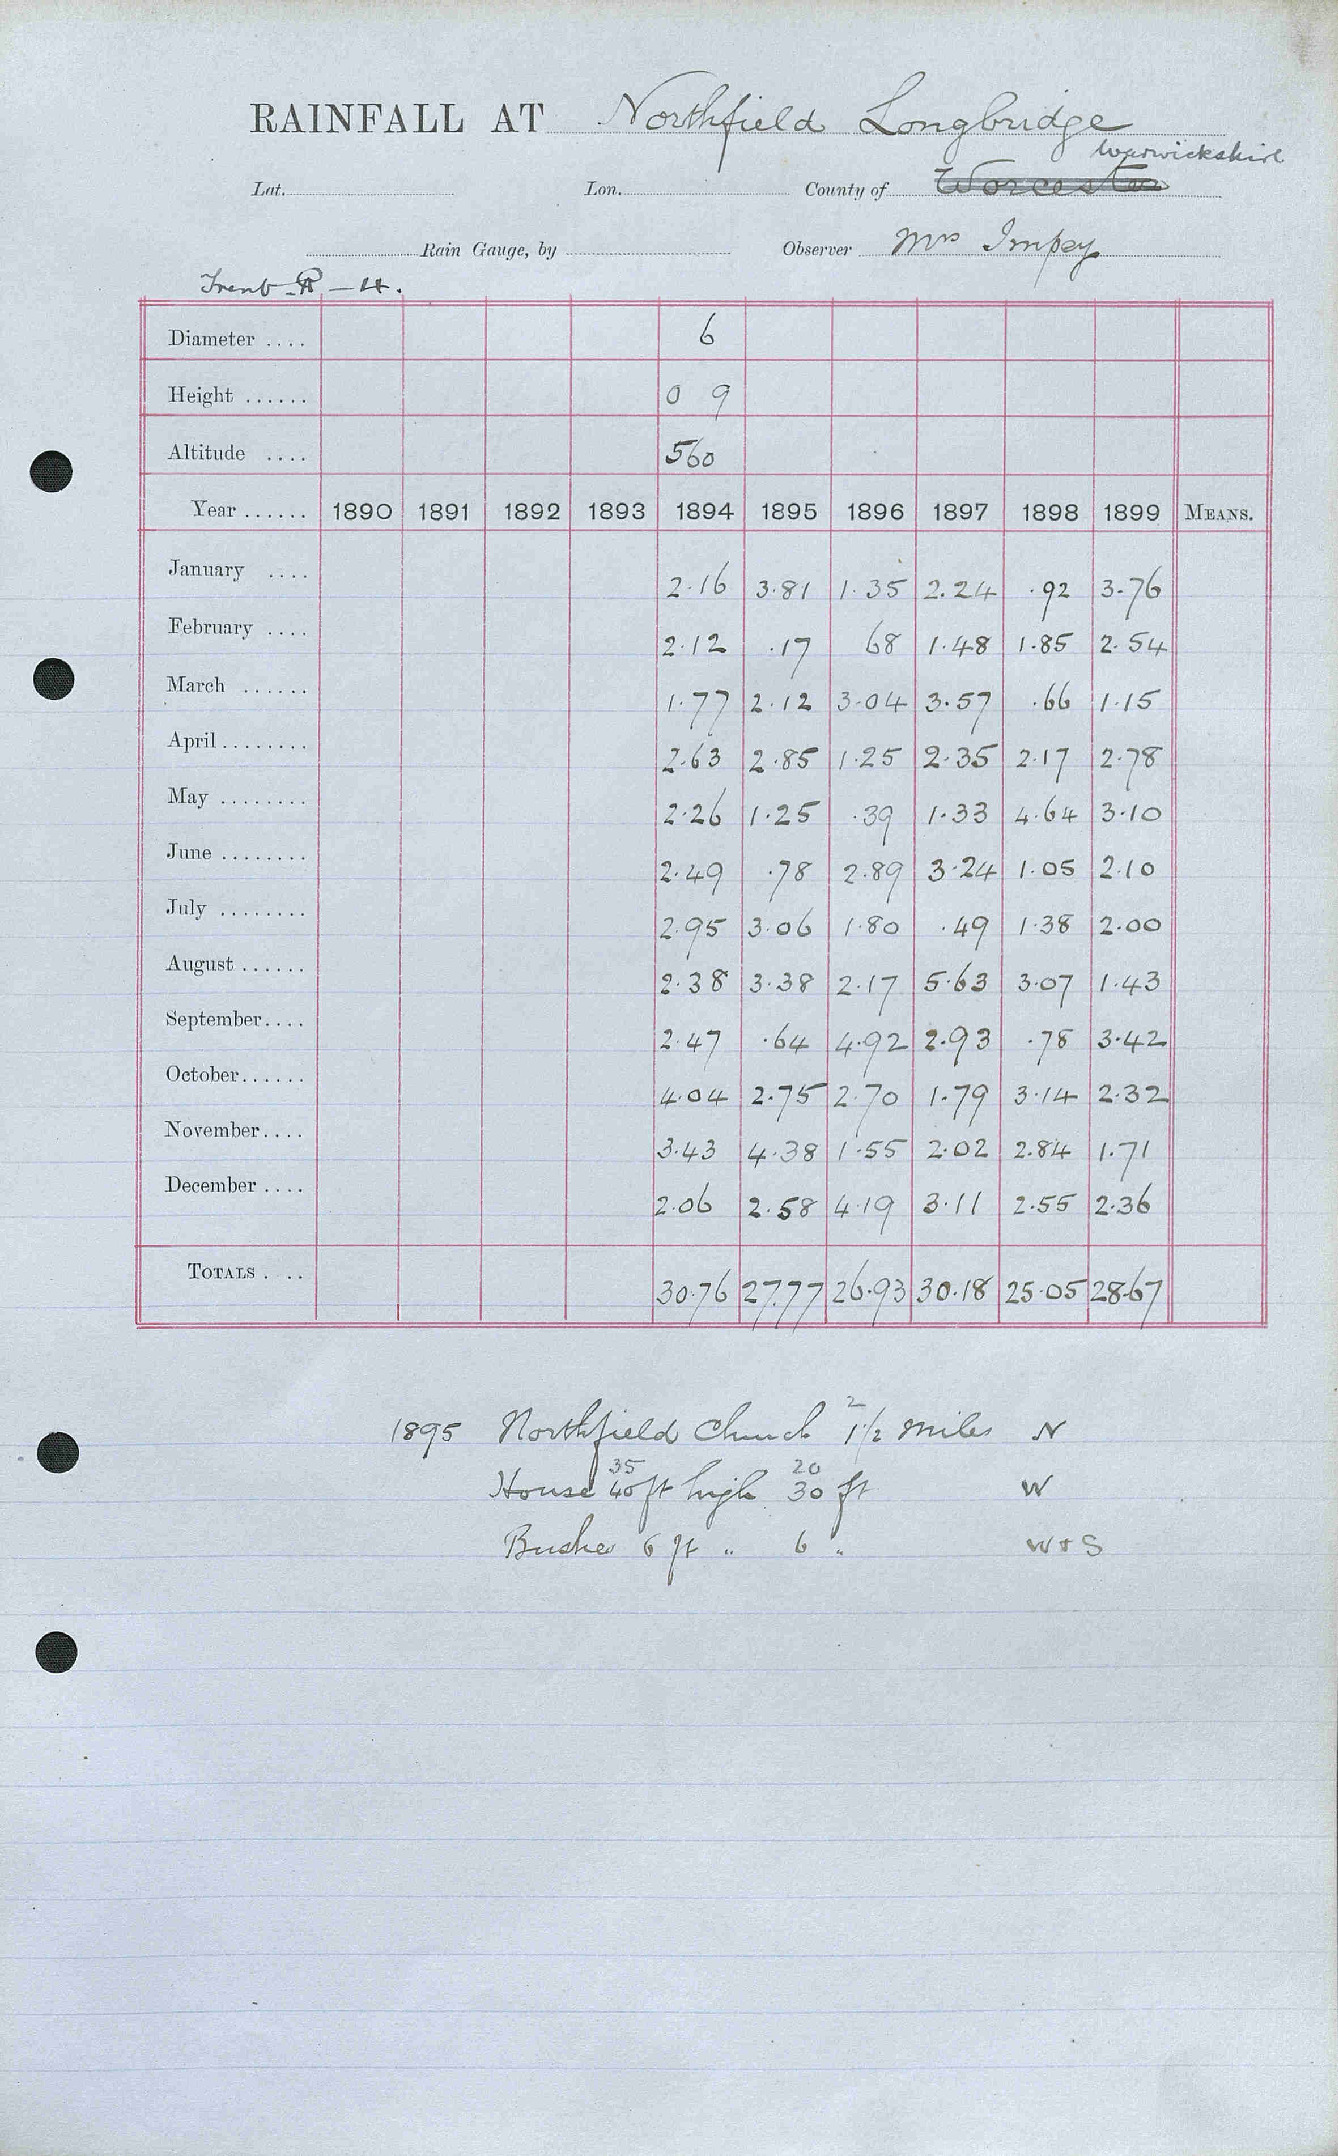 RAINFALL AT Northfield Longbridge
Warwickshire
Lat. Lon. County of Worcester
Rain Gauge, by Observer Mrs Impey
Trent
Diameter .... 6
Height ...... 0 9
Altitude .... 560
Year ...... 1890 1891 1892 1893 1894 1895 1896 1897 1898 1899 MEANS.
January .... 2.16 3.81 1.35 2.24 .92 3.76
February .... 2.12 .17 68 1.48 1.85 2.54
March ...... 1.77 2.12 3.04 3.57 .66 1.15
April ........ 2.63 2.85 1.25 2.35 2.17 2.78
May ........ 2.26 1.25 .39 1.33 4.64 3.10
June ........ 2.49 .78 2.89 3.24 1.05 2.10
July ........ 2.95 3.06 1.80 .49 1.38 2.00
August ...... 2.38 3.38 2.17 5.63 3.07 1.43
September.... 2.47 .64 4.92 2.93 .78 3.42
October...... 4.04 2.75 2.70 1.79 3.14 2.32
November.... 3.43 4.38 1.55 2.02 2.84 1.71
December .... 2.06 2.58 4.19 3.11 2.55 2.36
TOTALS . .. 30.76 27.77 26.93 30.18 25.05 28.67
2
1895 Northfield Church 1½ miles N
35 20
House 40 ft high 30 ft W
Bushes 6 ft " 6 " W & S